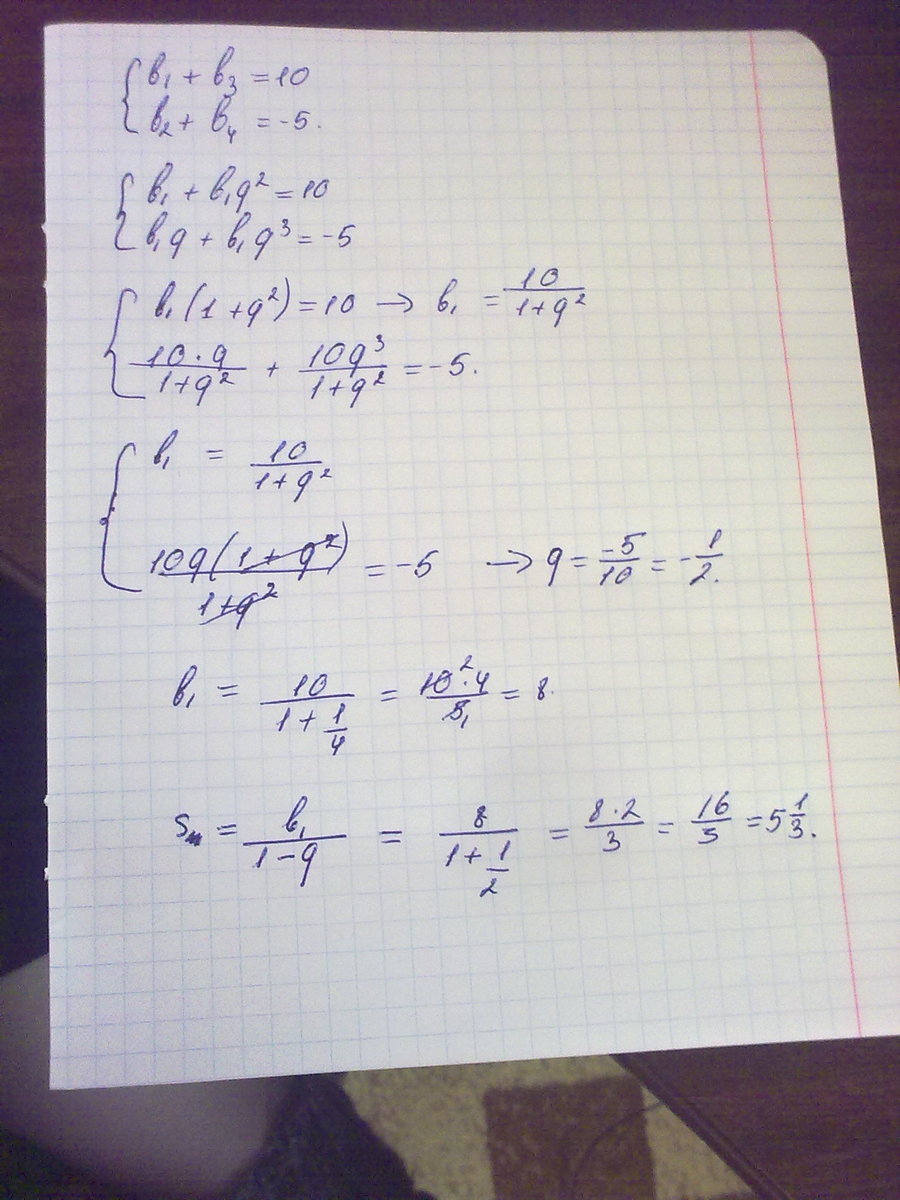 { b₁ + b₃ = 10
b₂ + b₄ = -5.
{ b₁ + b₁q² = 10
b₁q + b₁q³ = -5
{ b₁(1+q²) = 10 → b₁ = 10/(1+q²)
10·q/(1+q²) + 10q³/(1+q²) = -5.
{ b₁ = 10/(1+q²)
10q(1+q²)/(1+q²) = -5 → q = -5/10 = -1/2.
b₁ = 10/(1+1/4) = 10²·4/5₁ = 8.
Sₙ = b₁/(1-q) = 8/(1+1/2) = 8·2/3 = 16/3 = 5 1/3.